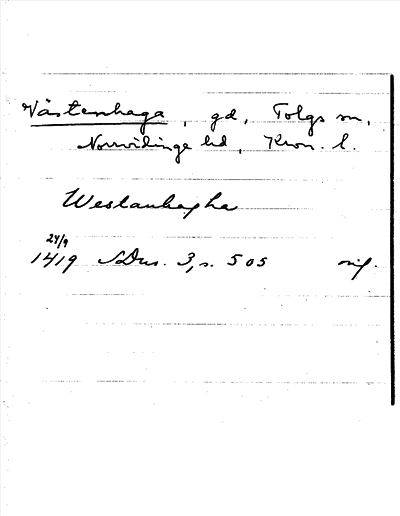 Västenhaga, gd, Tolgs sn,
Norrvidinge hd, Kron. l.
Westanhagha
24/9
1419 SDns. 3, s. 505 orig.